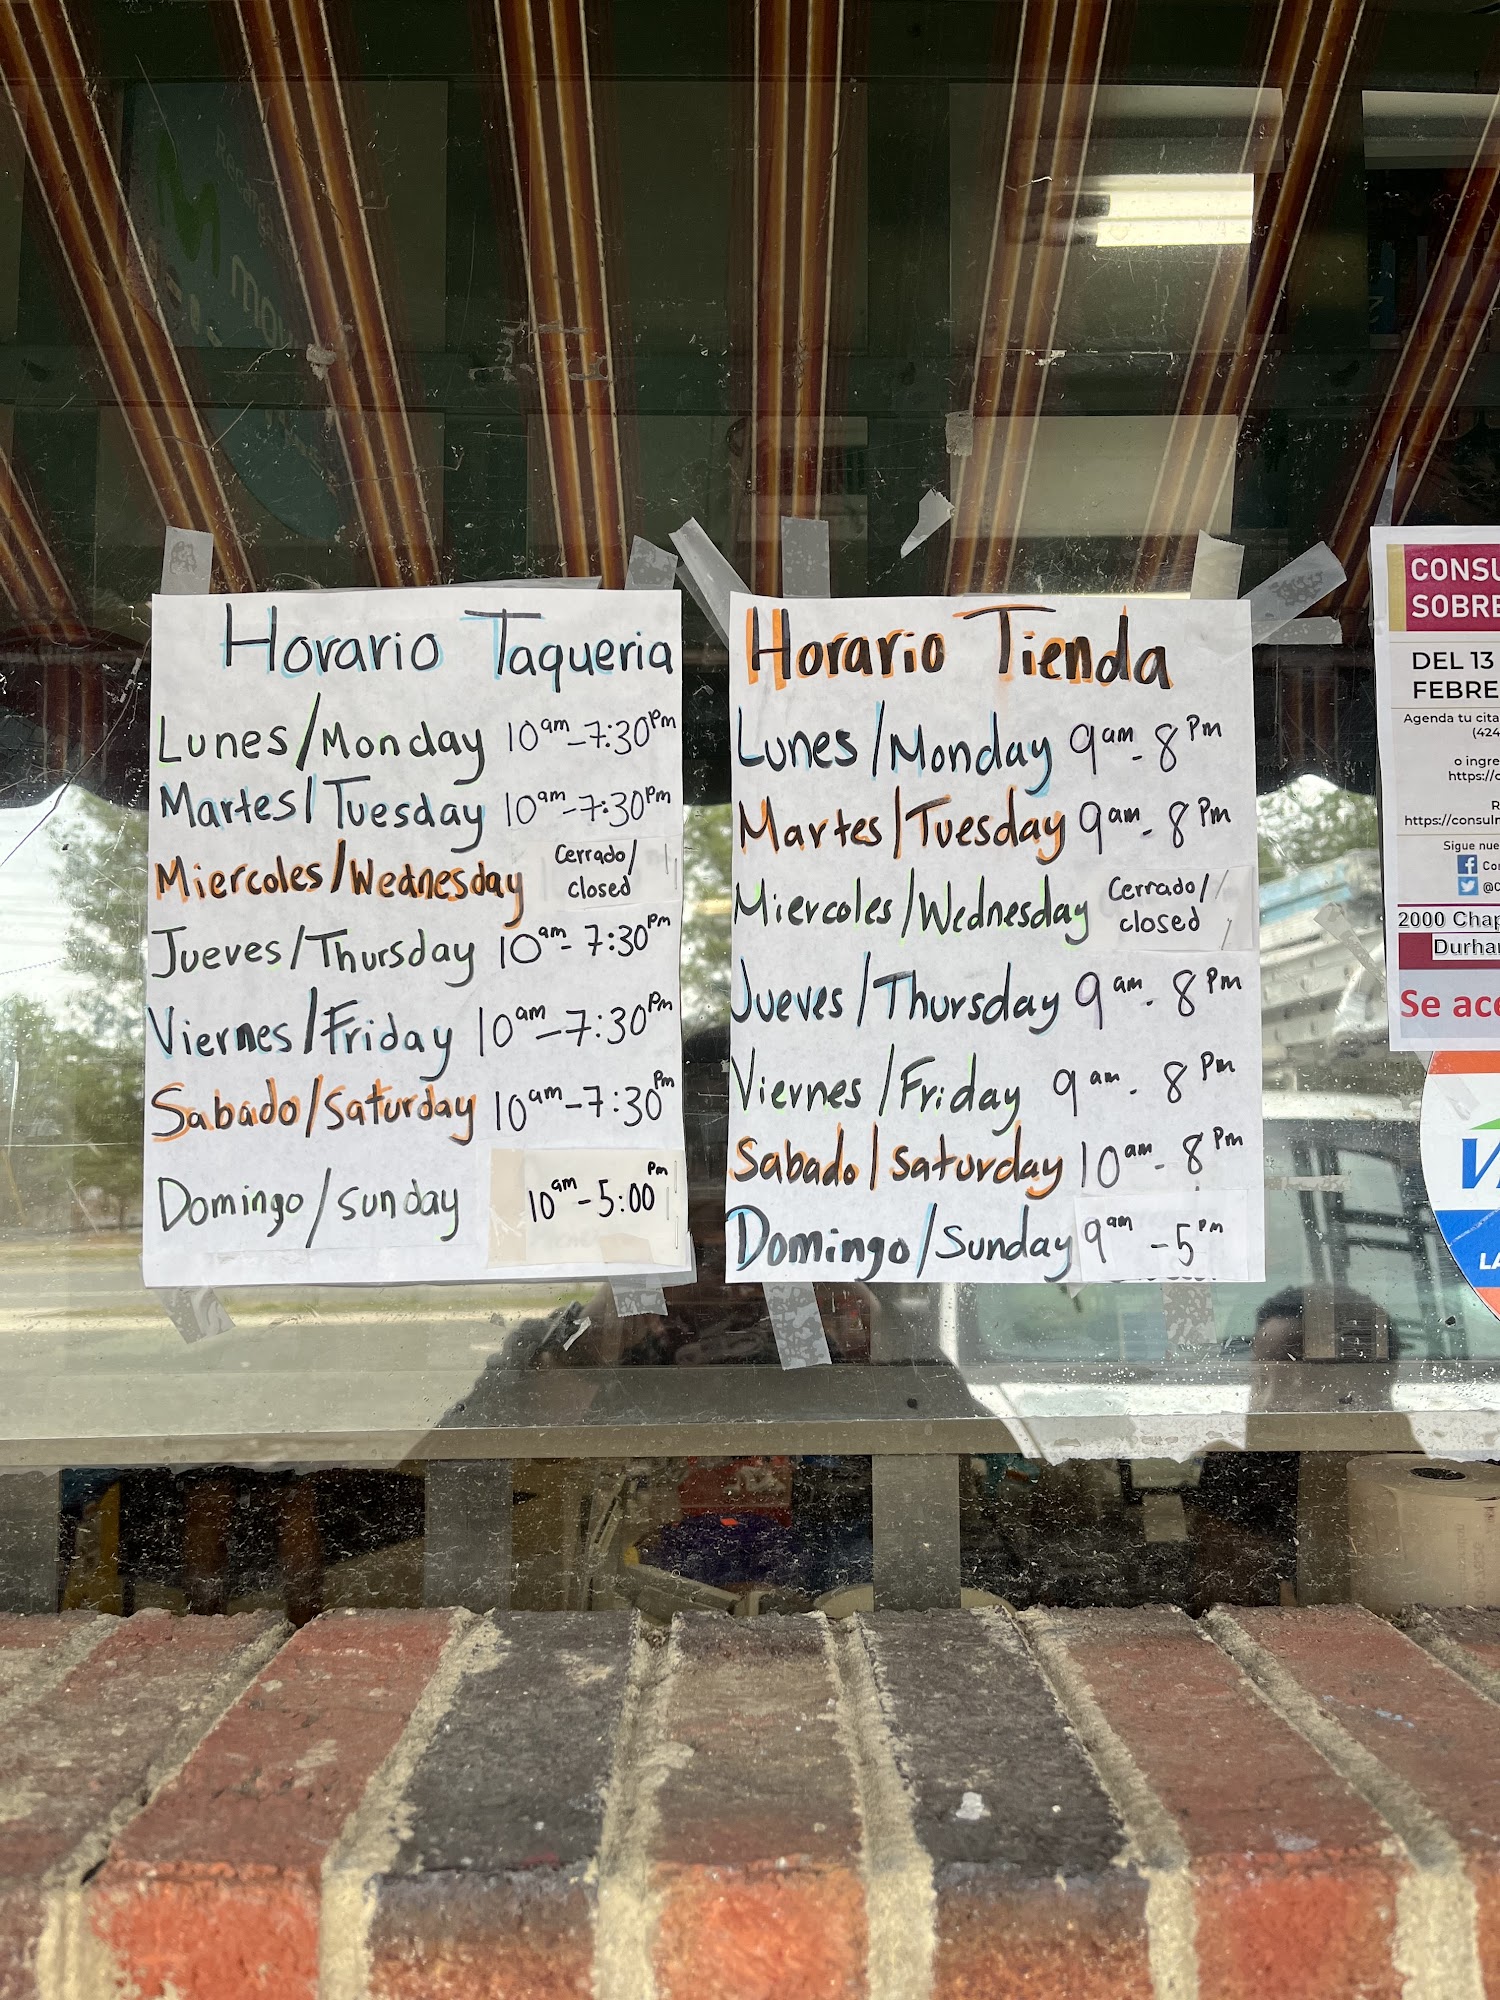 Horario Taqueria
Lunes/Monday 10am-7:30pm
Martes/Tuesday 10am-7:30pm
Miercoles/Wednesday Cerrado/
closed
Jueves/Thursday 10am-7:30pm
Viernes/Friday 10am-7:30pm
Sabado/Saturday 10am-7:30pm
Domingo/Sunday 10am-5:00pm
Horario Tienda
Lunes/Monday 9am-8pm
Martes/Tuesday 9am-8pm
Miercoles/Wednesday Cerrado/
closed
Jueves/Thursday 9am-8pm
Viernes/Friday 9am-8pm
Sabado/Saturday 10am-8pm
Domingo/Sunday 9am-5pm
CONSU
SOBRE
DEL 13
FEBRE
Agenda tu cita
(424
o ingre
https://c
https://consulm
Sigue nue
2000 Chap
Durha
Se ace